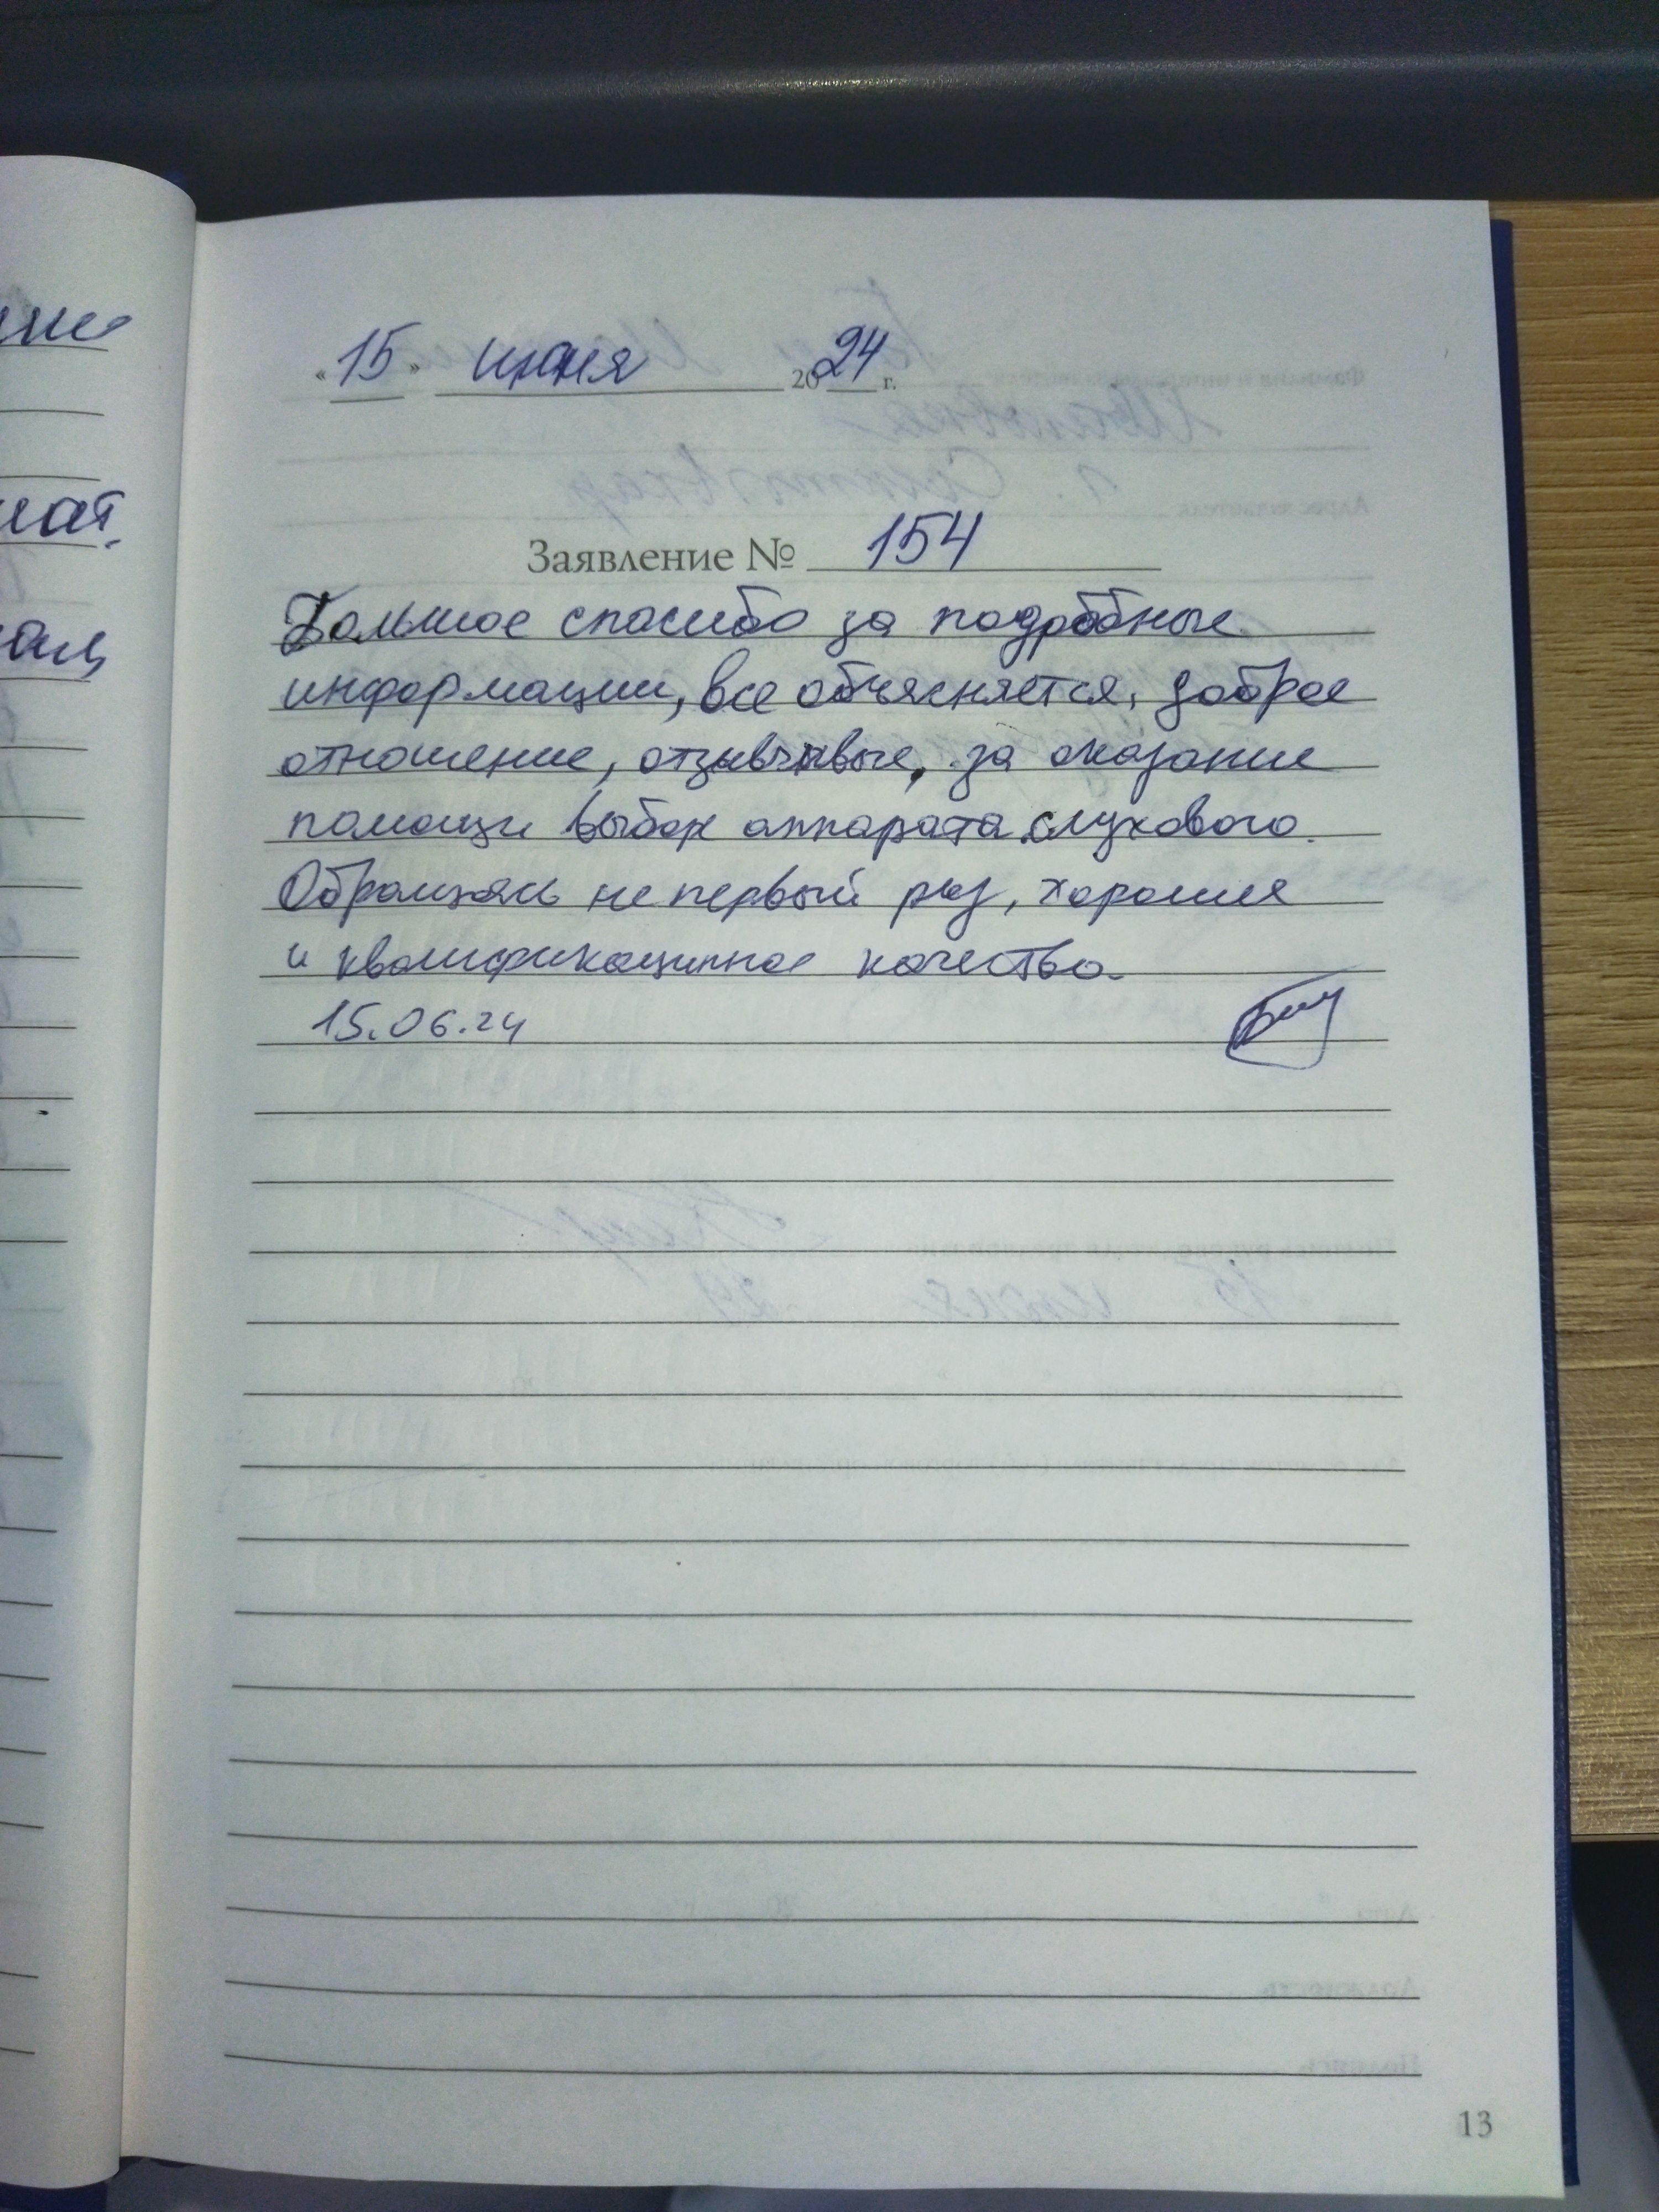 «15» июня 2024 г.
Заявление № 154
Большое спасибо за подробные
информации, все объясняется, доброе
отношение, отзывчивые, за оказание
помощи выбор аппарата слухового.
Обращаясь не первый раз, хорошия
и квалификационное качество
15.06.24
13